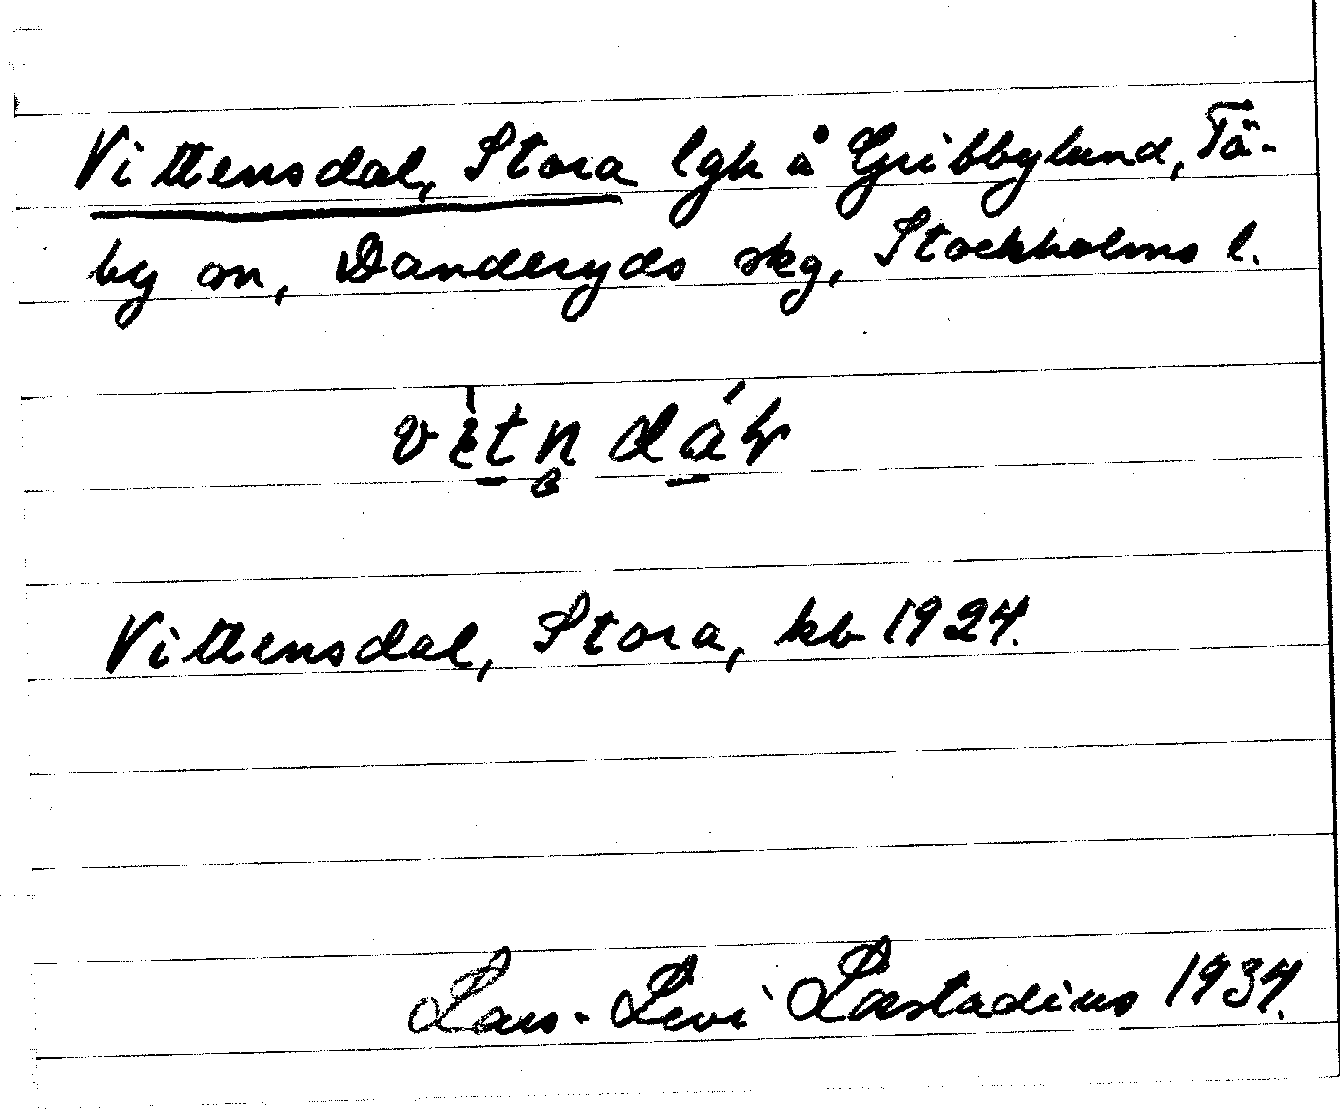 Vittensdal, Stora lgh å Gribbylund, Tä-
by sn, Danderyds skg, Stockholms l.
Vittensdal, Stora, kb 1924.
Lars-Levi Læstadius 1934.